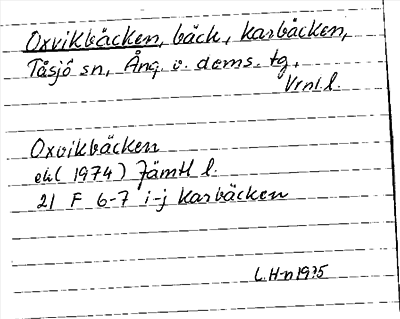 Oxvikbäcken, bäck, Karbäcken,
Tåsjö sn, Ång. v. doms. tg,
Vrnl. l.
Oxvikbäcken
ek( 1974) Jämtl l.
21 F 6-7 i-j Karbäcken
L.H-n 1975